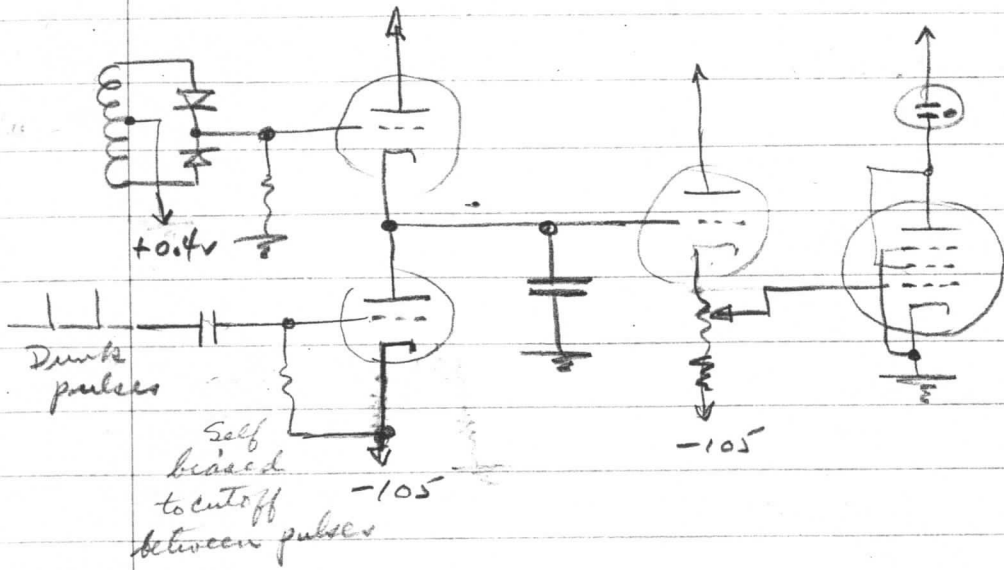 +0.4v
Dunk
pulses
Self
biased
to cutoff
between pulses
-105
-105